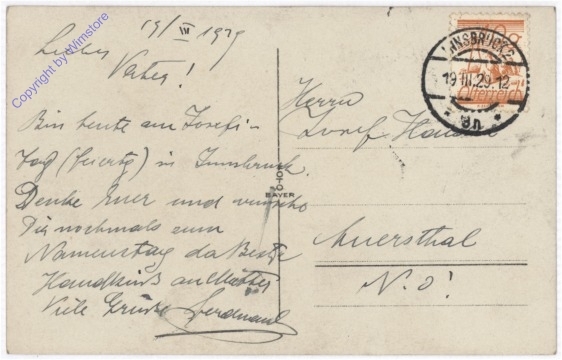 19/III 1929
Lieber
Vater!
Bin heute am Josefi-
tag (feiertg) in Innsbruck.
Denke Euer und wünsche
Dir nochmals zum
Namenstag das Beste
Handkuß an Mutter
Viele Grüße Ferdinand
Herrn
Josef
Auersthal
N.Ö!
INNSBRUCK 2
19.III.29.12
* 8n *
Österreich
FOTO
BAYER
Copyright by Wimstore